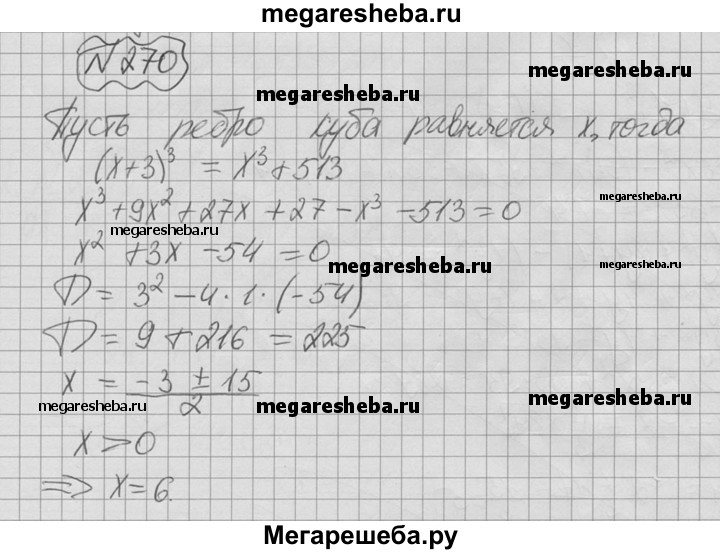 megaresheba.ru
N 270
megaresheba.ru
megaresheba.ru
Пусть ребро куба равняется x, тогда
(x+3)³ = x³+513
x³+9x²+27x+27-x³-513=0
megaresheba.ru
megaresheba.ru
x²+3x-54=0
megaresheba.ru
megaresheba.ru
D=3²-4·1·(-54)
D=9+216=225
x = (-3±15)/2
megaresheba.ru
megaresheba.ru
megaresheba.ru
x>0
=> x=6.
megaresheba.ru
megaresheba.ru
Мегарешеба.ру